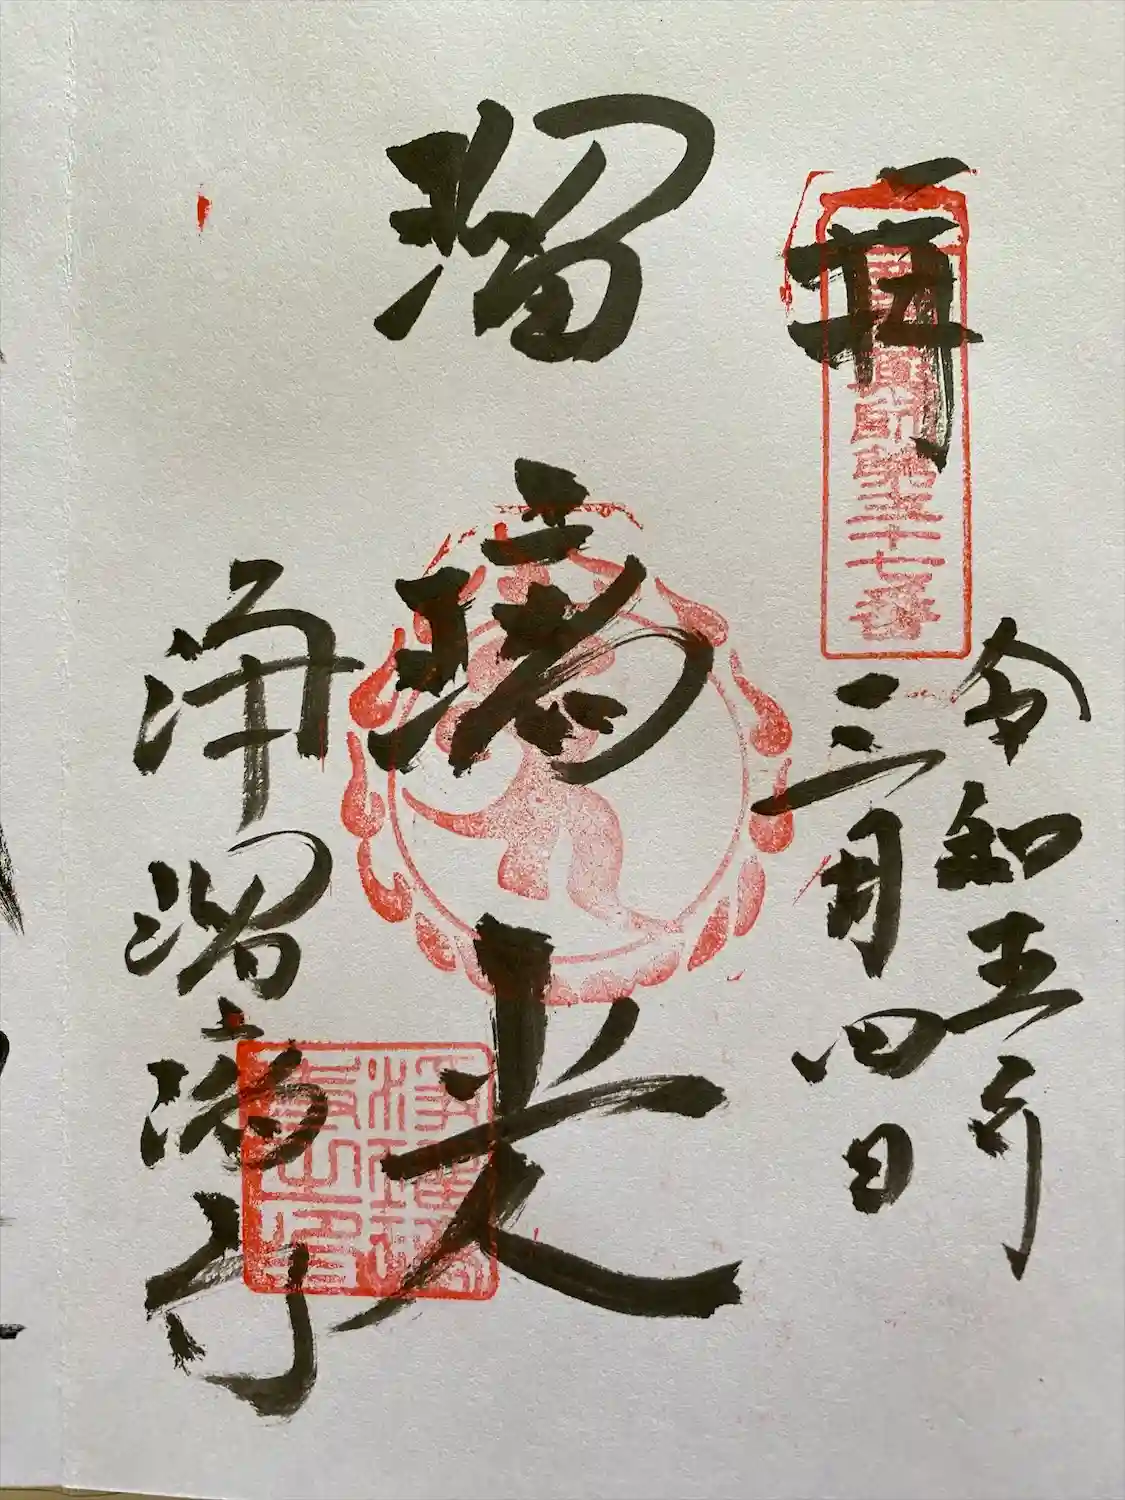 奉拝
西国薬師第三十七番
令和五年
三月四日
瑠璃光
浄瑠璃寺